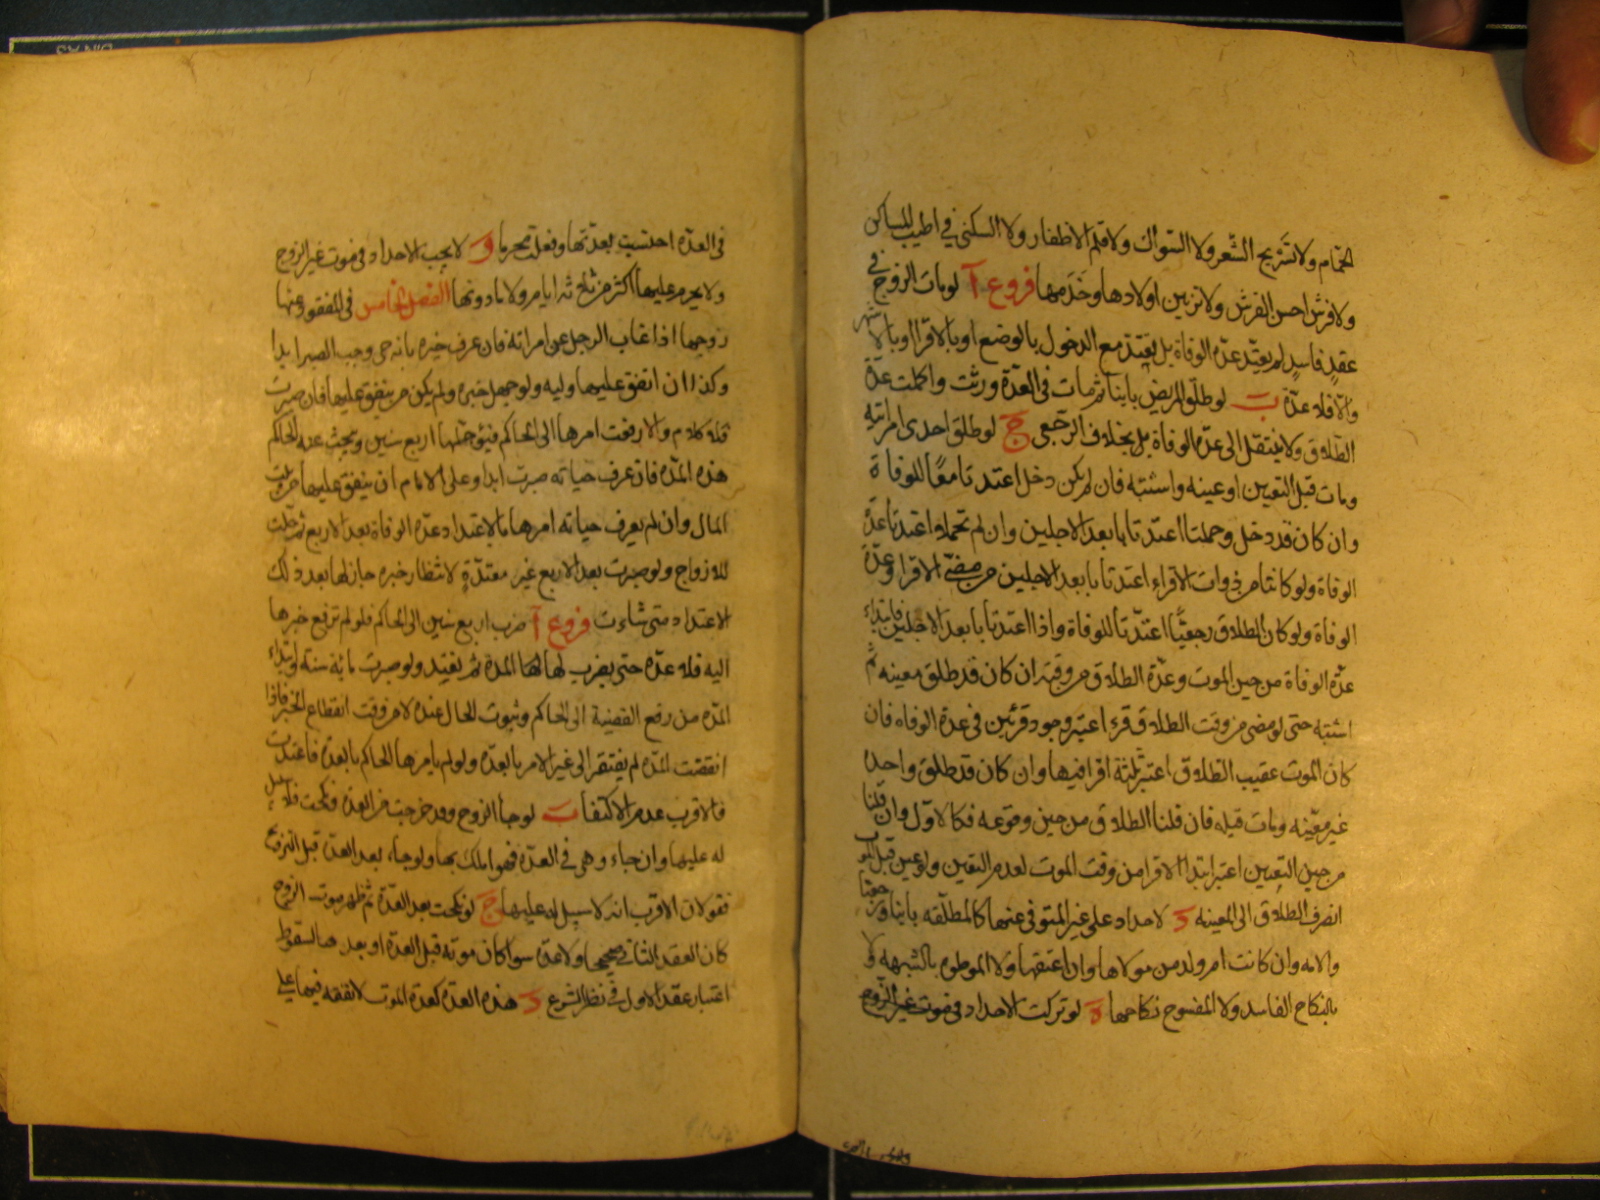 الحمام ولا تسريح الشعر ولا السواك ولا قلم الاظفار ولا السكنى في اطيب المساكن
ولا فرش احسن الفرش ولا تزيين اولادها وخدمها فروع آ لو مات الزوج في
عقد فاسد لم يعتد عدة الوفاة بل يعتد مع الدخول بالوضع او بالاقرا او بالاشهر
والا فلا عدة ب لو طلق المريض باينا ثم مات في العدة ورثت واكملت عدة
الطلاق ولا ينتقل الى عدة الوفاة بل بخلاف الرجعى ج لو طلق احدى امراتيه
ومات قبل التعيين او عينه واشتبه فان لم يكن دخل اعتدتا معا للوفاة
وان كان قد دخل وحملتا اعتدتا بابعد الاجلين وان لم تحملا اعتدتا عدة
الوفاة ولو كانتا من ذوات الاقراء اعتدتا بابعد الاجلين من مضى الاقرا وعدة
الوفاة ولو كان الطلاق رجعيا اعتدتا للوفاة واذا اعتدتا بابعد الاجلين فابتداء
عدة الوفاة من حين الموت وعدة الطلاق من وقته ان كان قد طلق معينه ثم
اشتبه حتى لو مضى من وقت الطلاق قرء اعتبر وجود قرئين في عدة الوفاه فان
كان الموت عقيب الطلاق اعتبر ثلثة اقرا فيها وان كان قد طلق واحدة
غير معينه ومات قبله فان قلنا الطلاق من حين وقوعه فكالاول وان قلنا
من حين التعيين اعتبر ابتدا الاقرا من وقت الموت لعدم التعيين ولو عين قبل الموت
انصرف الطلاق الى المعينه د لا حداد على غير المتوفى عنها كالمطلقه باينا ورجعيا
والامه وان كانت ام ولد من مولاها وان اعتقها ولا الموطوه بالشبهه ولا
بالنكاح الفاسد ولا المفسوخ نكاحها ه لو تركت الاحداد في موت غير الزوج
في العدة احتسبت بعدتها وفعلت محرما و لا يجب الاحداد في موت غير الزوج
ولا يحرم عليها اكثر من ثلثة ايام ولا ما دونها الفصل الخامس في المفقود عنها
زوجها اذا غاب الرجل عن امراته فان عرف خبره بانه حى وجب الصبر ابدا
وكذا ان انفق عليها وليه ولو جهل خبره ولم يكن من ينفق عليها فان صبرت
فلا كلام والا رفعت امرها الى الحاكم فيؤجلها اربع سنين ويبحث عنه الحاكم
هذه المدة فان عرف حياته صبرت ابدا وعلى الامام ان ينفق عليها من بيت
المال وان لم يعرف حياته امرها بالاعتداد عدة الوفاة بعد الاربع ثم حلت
للازواج ولو صبرت بعد الاربع غير معتدة لانتظار خبره جاز لها بعد ذلك
الاعتداد متى شاءت فروع آ ضرب اربع سنين الى الحاكم فلو لم ترفع خبرها
اليه فلا عدة حتى يضرب لها المدة ثم يعتد ولو صبرت ماية سنة وابتداء
المدة من رفع القضية الى الحاكم وثبوت الحال عنده لا من وقت انقطاع الخبر فاذا
انقضت المدة لم يفتقر الى غير الامر بالعدة ولو لم يامرها الحاكم بالعدة فاعتدت
فالاقرب عدم الاكتفا ب لو جا الزوج وقد خرجت من العدة فنكحت فلا سبيل
له عليها وان جاء وهى في العدة فهو املك بها ولو جاء بعد العدة قبل التزويج
فقولان الاقرب انه لا سبيل له عليها ج لو نكحت بعد العدة ثم ظهر موت الزوج
كان العقد الثانى صحيحا ولا عدة سوا كان موته قبل العدة او بعدها لسقوط
اعتبار عقد الاول في نظر الشرع د هذه العدة كعدة الموت لا نفقه فيها على